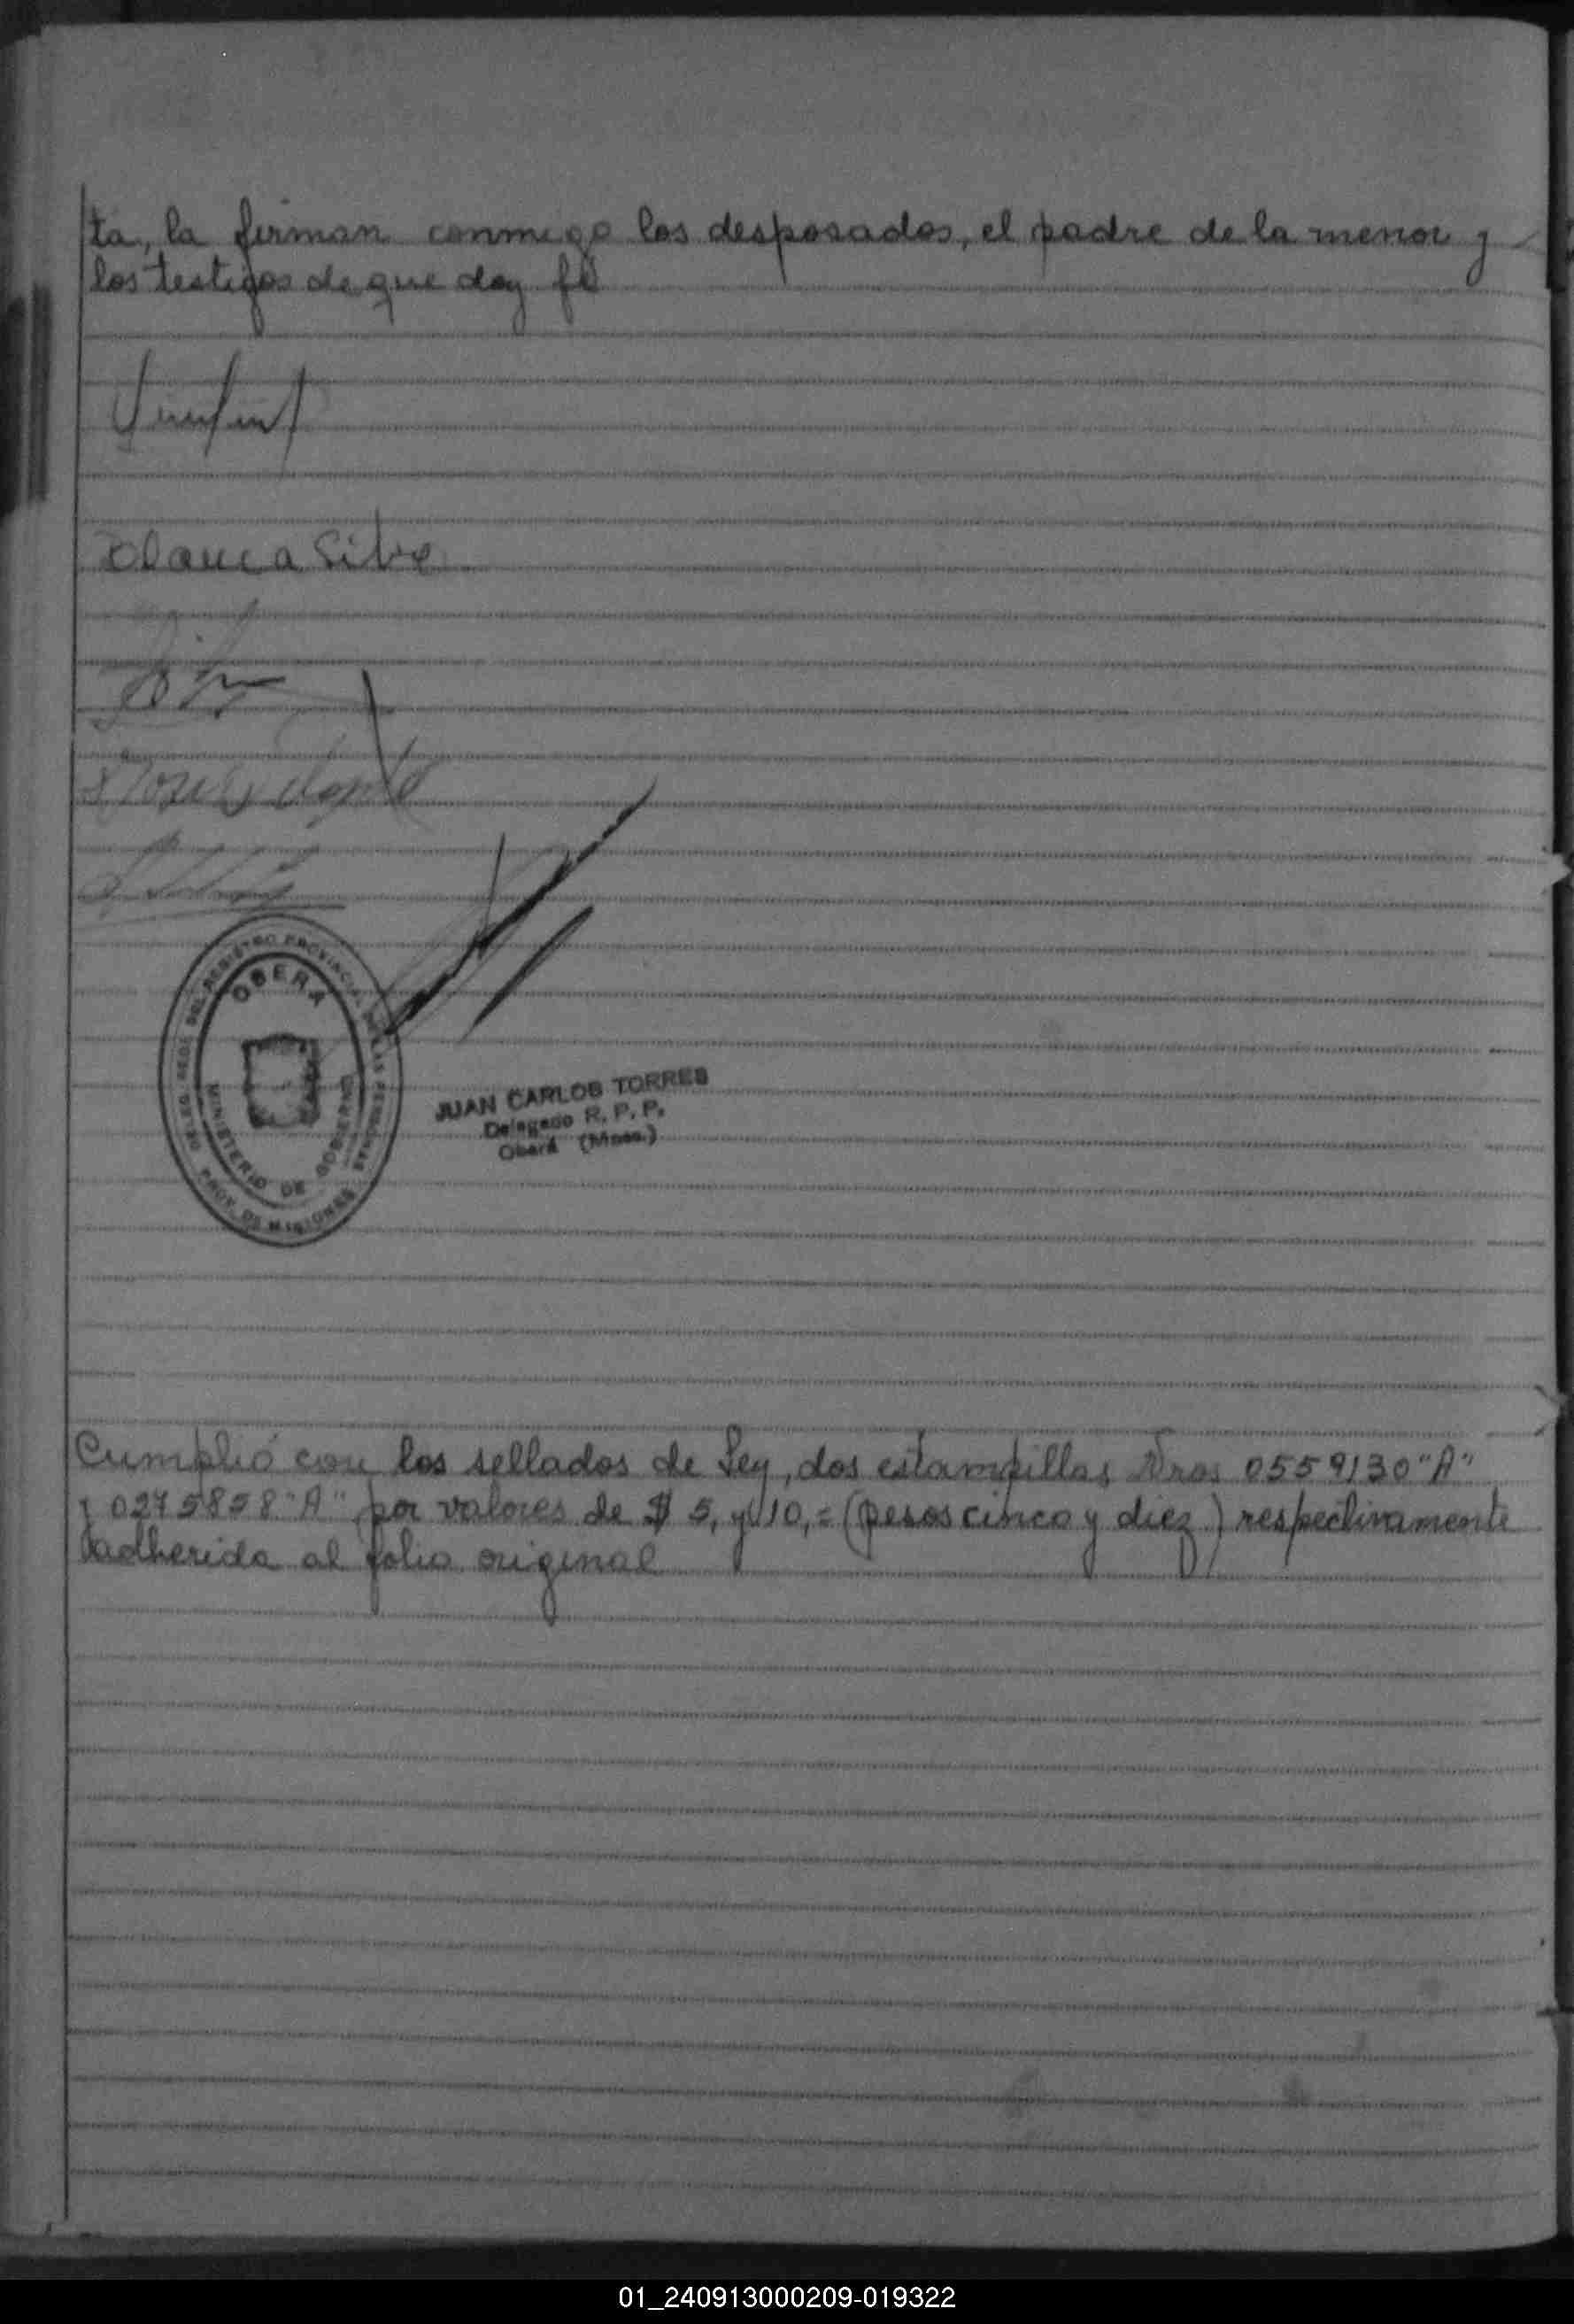 ta, la firman conmigo los desposados, el padre de la menor y
los testigos de que doy fé
Blanca Silva
OBERÁ
DELEG. SEDE DEL REGISTRO PROVINCIAL DE LAS PERSONAS
MINISTERIO DE GOBIERNO
PROV. DE MISIONES
JUAN CARLOS TORRES
Delegado R. P. P.
Oberá (Mnes.)
Cumplió con los sellados de Ley, dos estampillas Nros 0559130 "A"
y 0275858 "A" por valores de $ 5, y 10,= (pesos cinco y diez) respectivamente
adherida al folio original
01_240913000209-019322